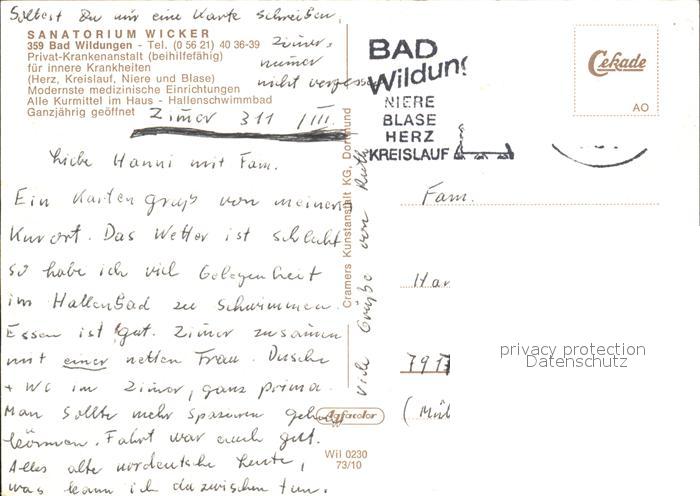 Solltest Du mir eine Karte schreiben,
Zimer-
numer
nicht vergessen
SANATORIUM WICKER
359 Bad Wildungen - Tel. (0 56 21) 40 36-39
Privat-Krankenanstalt (beihilfefähig)
für innere Krankheiten
(Herz, Kreislauf, Niere und Blase)
Modernste medizinische Einrichtungen
Alle Kurmittel im Haus - Hallenschwimmbad
Ganzjährig geöffnet
Zimer 311 /III.
Liebe Hanni mit Fam.
Ein Kartengruß von meinem
Kurort. Das Wetter ist schlecht
so habe ich viel Gelegenheit
im Hallenbad zu Schwimmen.
Essen ist gut. Zimer zusamen
mit einer netten Frau. Dusche
+ WC im Zimer, ganz prima.
Man sollte mehr spazieren gehen
können. Fahrt war auch gut.
Alles alte nordeutsche Leute,
was kann ich dazwischen tun.
Viele Grüße von Ruth
Cramers Kunstanstalt KG, Dortmund
Agfacolor
Wil 0230
73/10
BAD
Wildung
NIERE
BLASE
HERZ
KREISLAUF
Cekade
AO
Fam.
Har
7917
(Mül
privacy protection
Datenschutz